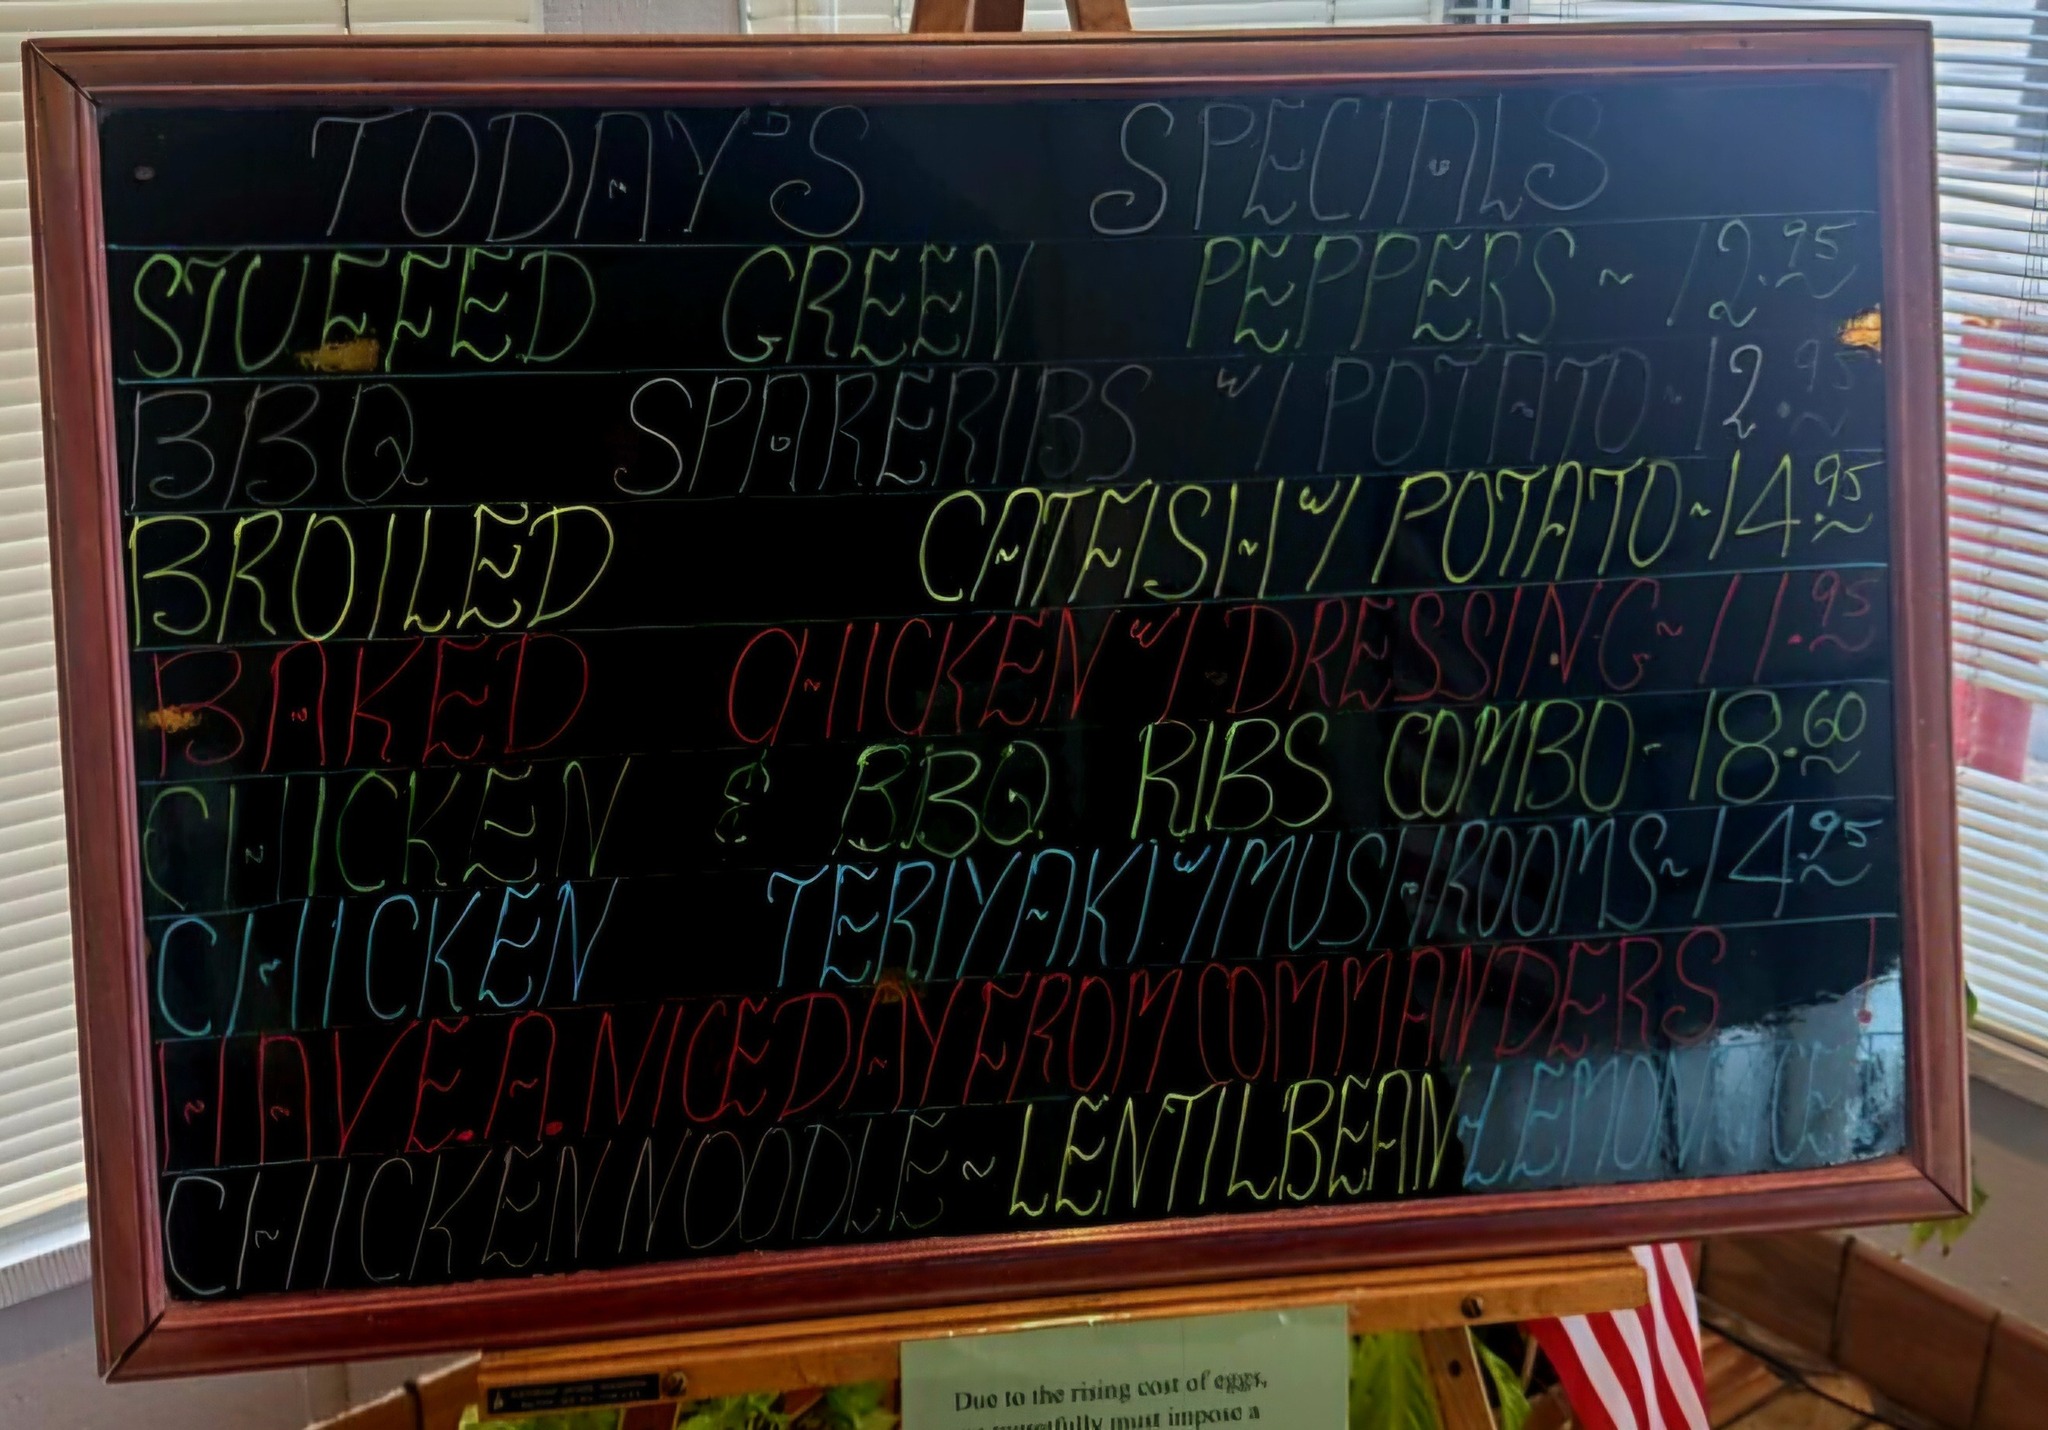 TODAY'S SPECIALS
STUFFED GREEN PEPPERS ~ 12.95
BBQ SPARERIBS W/ POTATO - 12.95
BROILED CATFISH W/ POTATO ~ 14.95
BAKED CHICKEN W/ DRESSING ~ 11.95
CHICKEN & B.B.Q. RIBS COMBO - 18.60
CHICKEN TERIYAKI W/ MUSHROOMS ~ 14.95
HAVE.A.NICE DAY FROM COMMANDERS !
CHICKEN NOODLE ~ LENTIL BEAN ~ LEMON RICE
Due to the rising cost of eggs,
must impose a